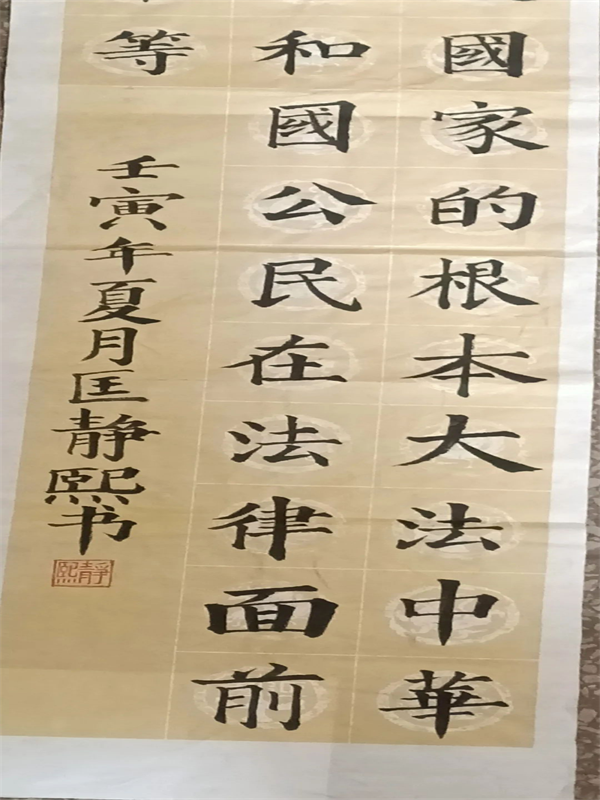 國家的根本大法中華
和國公民在法律面前
等
壬寅年夏月匡静熙书
靜熙